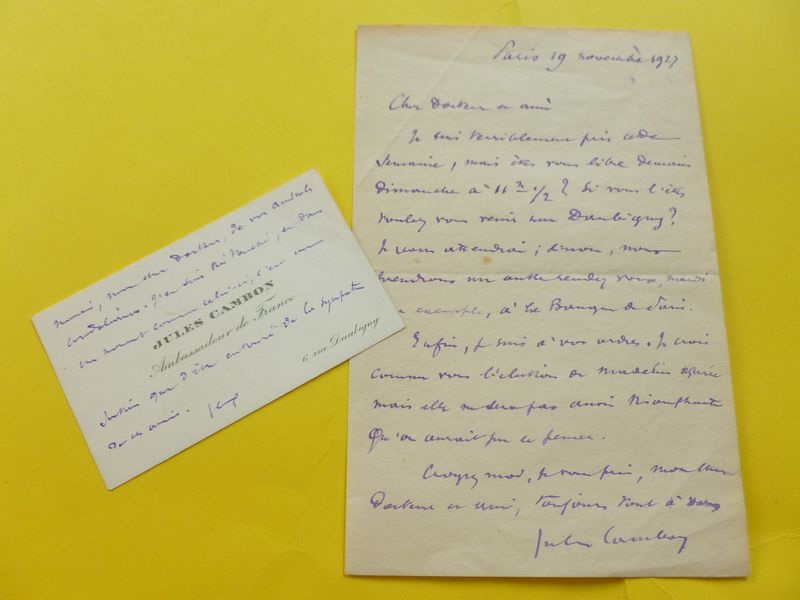 Paris 19 novembre 1927
Cher Docteur et ami
Je suis terriblement pris cette
semaine, mais êtes vous libre demain
Dimanche à 11 h 1/2 ? Si vous l'êtes
voulez vous venir rue Daubigny ?
Je vous attendrai ; sinon, nous
prendrons un autre rendez vous, mardi
exemple, à la Banque de Paris.
Enfin, je suis à vos ordres. Je crois
comme vous l'élection de Madelin assurée
mais elle ne sera pas aussi triomphante
Qu'on aurait pu le penser.
Croyez moi, je vous prie, mon cher
Docteur et ami, toujours tout à vous
Jules Cambon
Merci, mon cher Docteur, de vos amicales
condoléances. J'en suis très touché, et dans
un moment comme celui-ci, c'est un
JULES CAMBON
Ambassadeur de France
6, rue Daubigny
que d'être entouré de la sympathie
de ses amis.